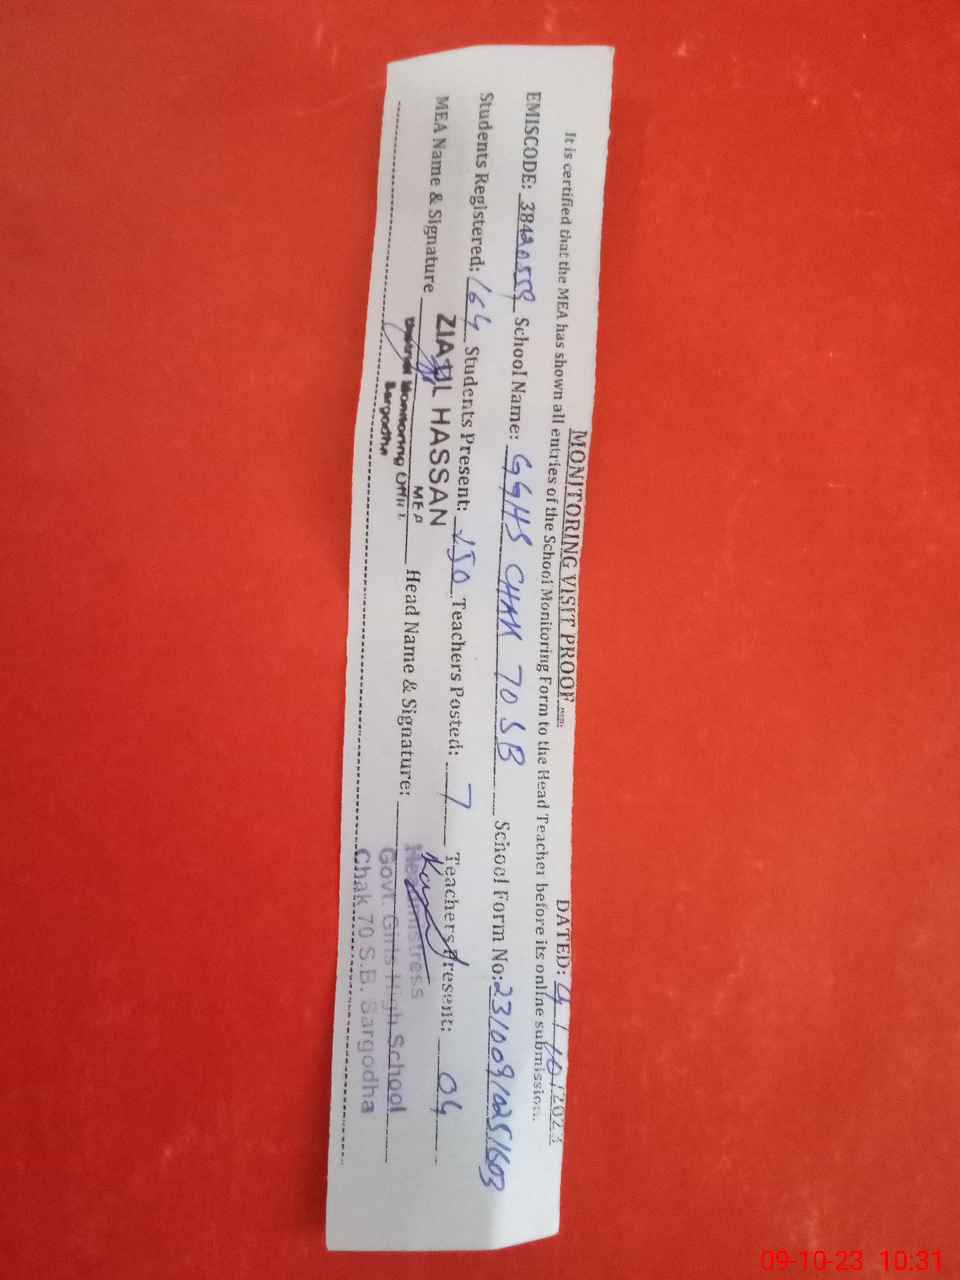 MONITORING VISIT PROOF
DATED: 9/10/2023
It is certified that the MEA has shown all entries of the School Monitoring Form to the Head Teacher before its online submission.
EMISCODE: 38420559 School Name: GGHS CHAK 70 SB School Form No: 23100910251603
Students Registered: 164 Students Present: 150 Teachers Posted: 7 Teachers Present: 04
MEA Name & Signature Head Name & Signature:
ZIA UL HASSAN
MEA
Monitoring
Sargodha
Headmistress
Govt. Girls High School
Chak 70 S.B. Sargodha
09-10-23 10:31